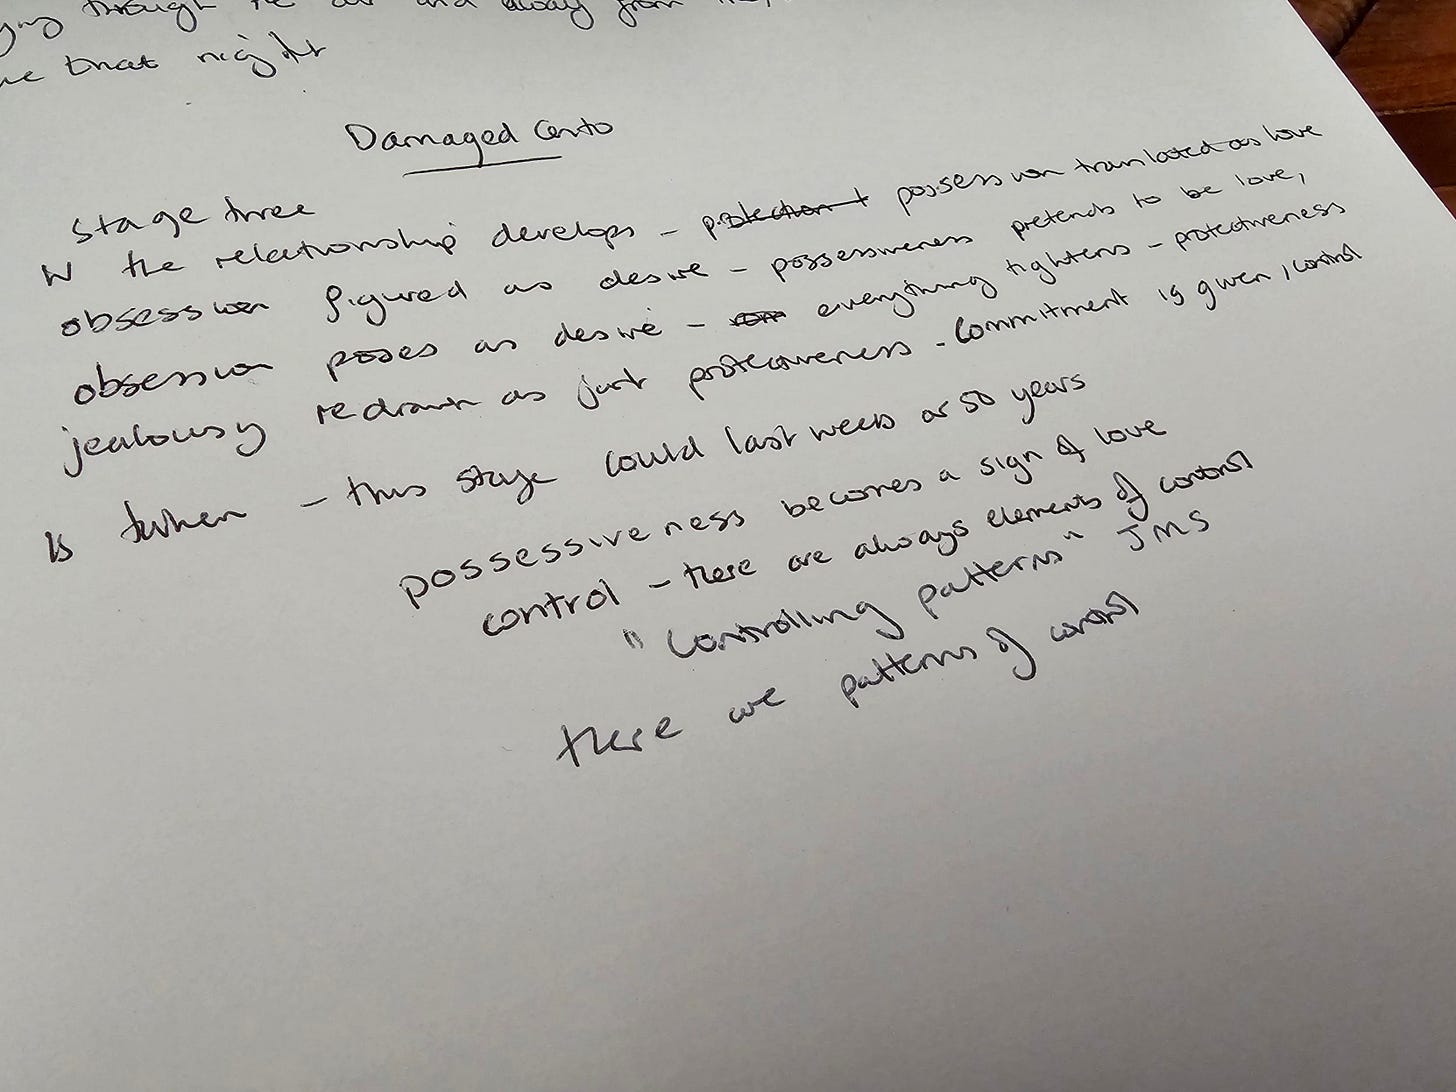 through and away from
that night
Damaged Cento
stage three
the relationship develops - protection possession translated as love
obsession figured as desire - possessiveness pretends to be love,
obsession poses as desire - everything tightens - protectiveness
jealousy redrawn as just protectiveness - commitment is given, control
is taken - this stage could last weeks or 50 years
possessiveness becomes a sign of love
control - there are always elements of control
"Controlling patterns" JMS
there are patterns of control